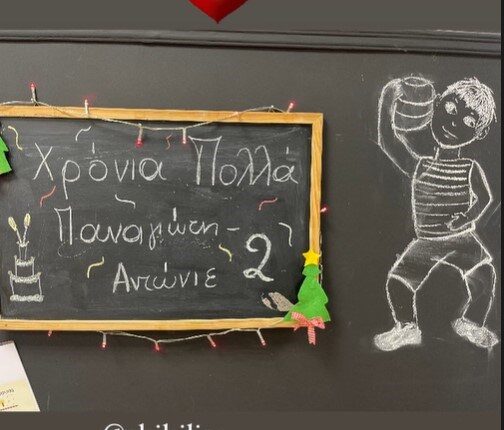 Χρόνια Πολλά
Παναγιώτη-
Αντώνιε 2